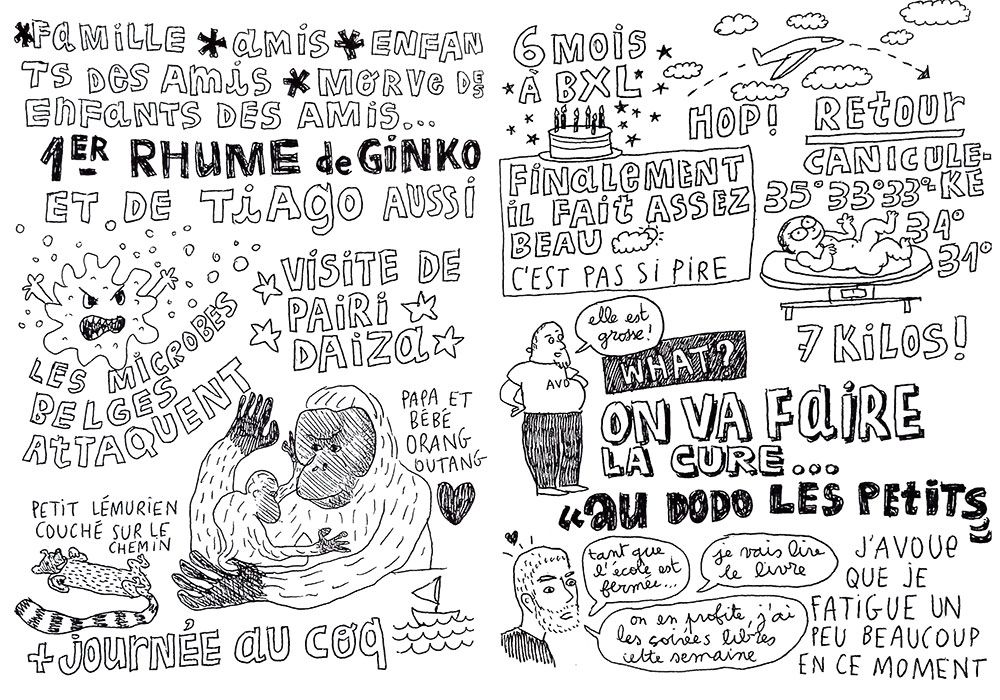 *FAMILLE *AMIS *ENFAN
TS DES AMIS *MORVE DES
ENFANTS DES AMIS...
1ER RHUME de GINKO
ET DE TIAGO AUSSI
LES MICROBES
BELGES
ATTAQUENT
VISITE DE
PAIRI
DAIZA
PAPA ET
BÉBÉ
ORANG
OUTANG
PETIT LÉMURIEN
COUCHÉ SUR LE
CHEMIN
+ JOURNÉE AU COQ
6 MOIS
À BXL
HOP!
RETOUR
CANICULE-
KE
35° 33° 33°
34°
31°
FINALEMENT
IL FAIT ASSEZ
BEAU
C'EST PAS SI PIRE
7 KILOS!
elle est
grosse!
AVO
WHAT?
ON VA FAIRE
LA CURE...
"AU DODO LES PETITS"
tant que
l'école est
fermée...
je vais lire
le livre
on en profite, j'ai
les soirées libres
cette semaine
J'AVOUE
QUE JE
FATIGUE UN
PEU BEAUCOUP
EN CE MOMENT